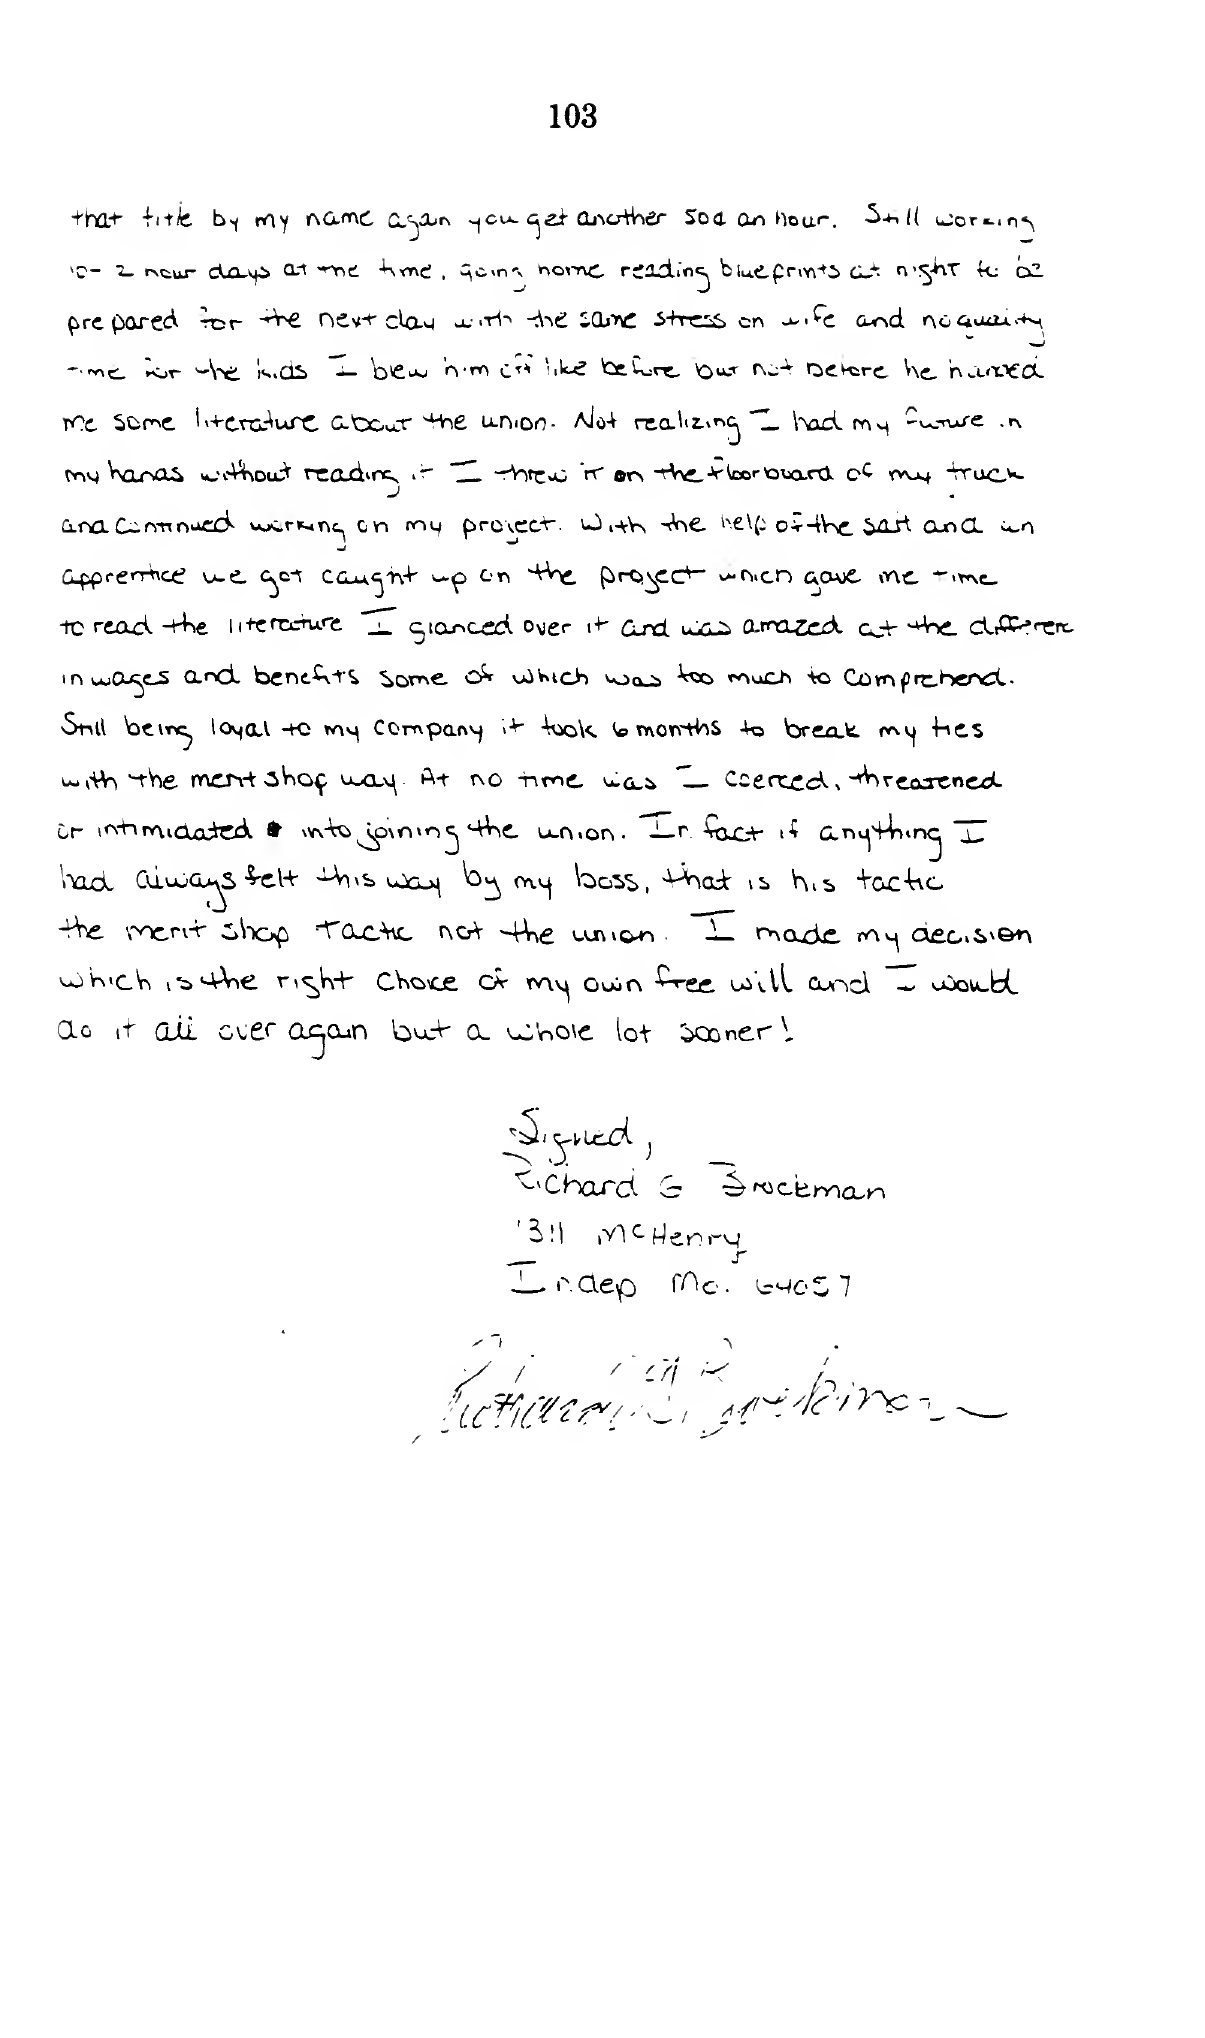 103
that title by my name again you get another 50¢ an hour. Still working
10-12 hour days at the time, going home reading blueprints at night to be
prepared for the next day with the same stress on wife and no quality
time for the kids I blew him off like before but not before he handed
me some literature about the union. Not realizing I had my future in
my hands without reading it I threw it on the floorboard of my truck
and continued working on my project. With the help of the salt and an
apprentice we got caught up on the project which gave me time
to read the literature I glanced over it and was amazed at the different
in wages and benefits some of which was too much to comprehend.
Still being loyal to my company it took 6 months to break my ties
with the merit shop way. At no time was I coerced, threatened
or intimidated into joining the union. In fact if anything I
had always felt this way by my boss, that is his tactic
the merit shop tactic not the union. I made my decision
which is the right choice of my own free will and I would
do it all over again but a whole lot sooner!
Signed,
Richard G Brockman
McHenry
Indep Mo. 64057
Richard G. Brockman